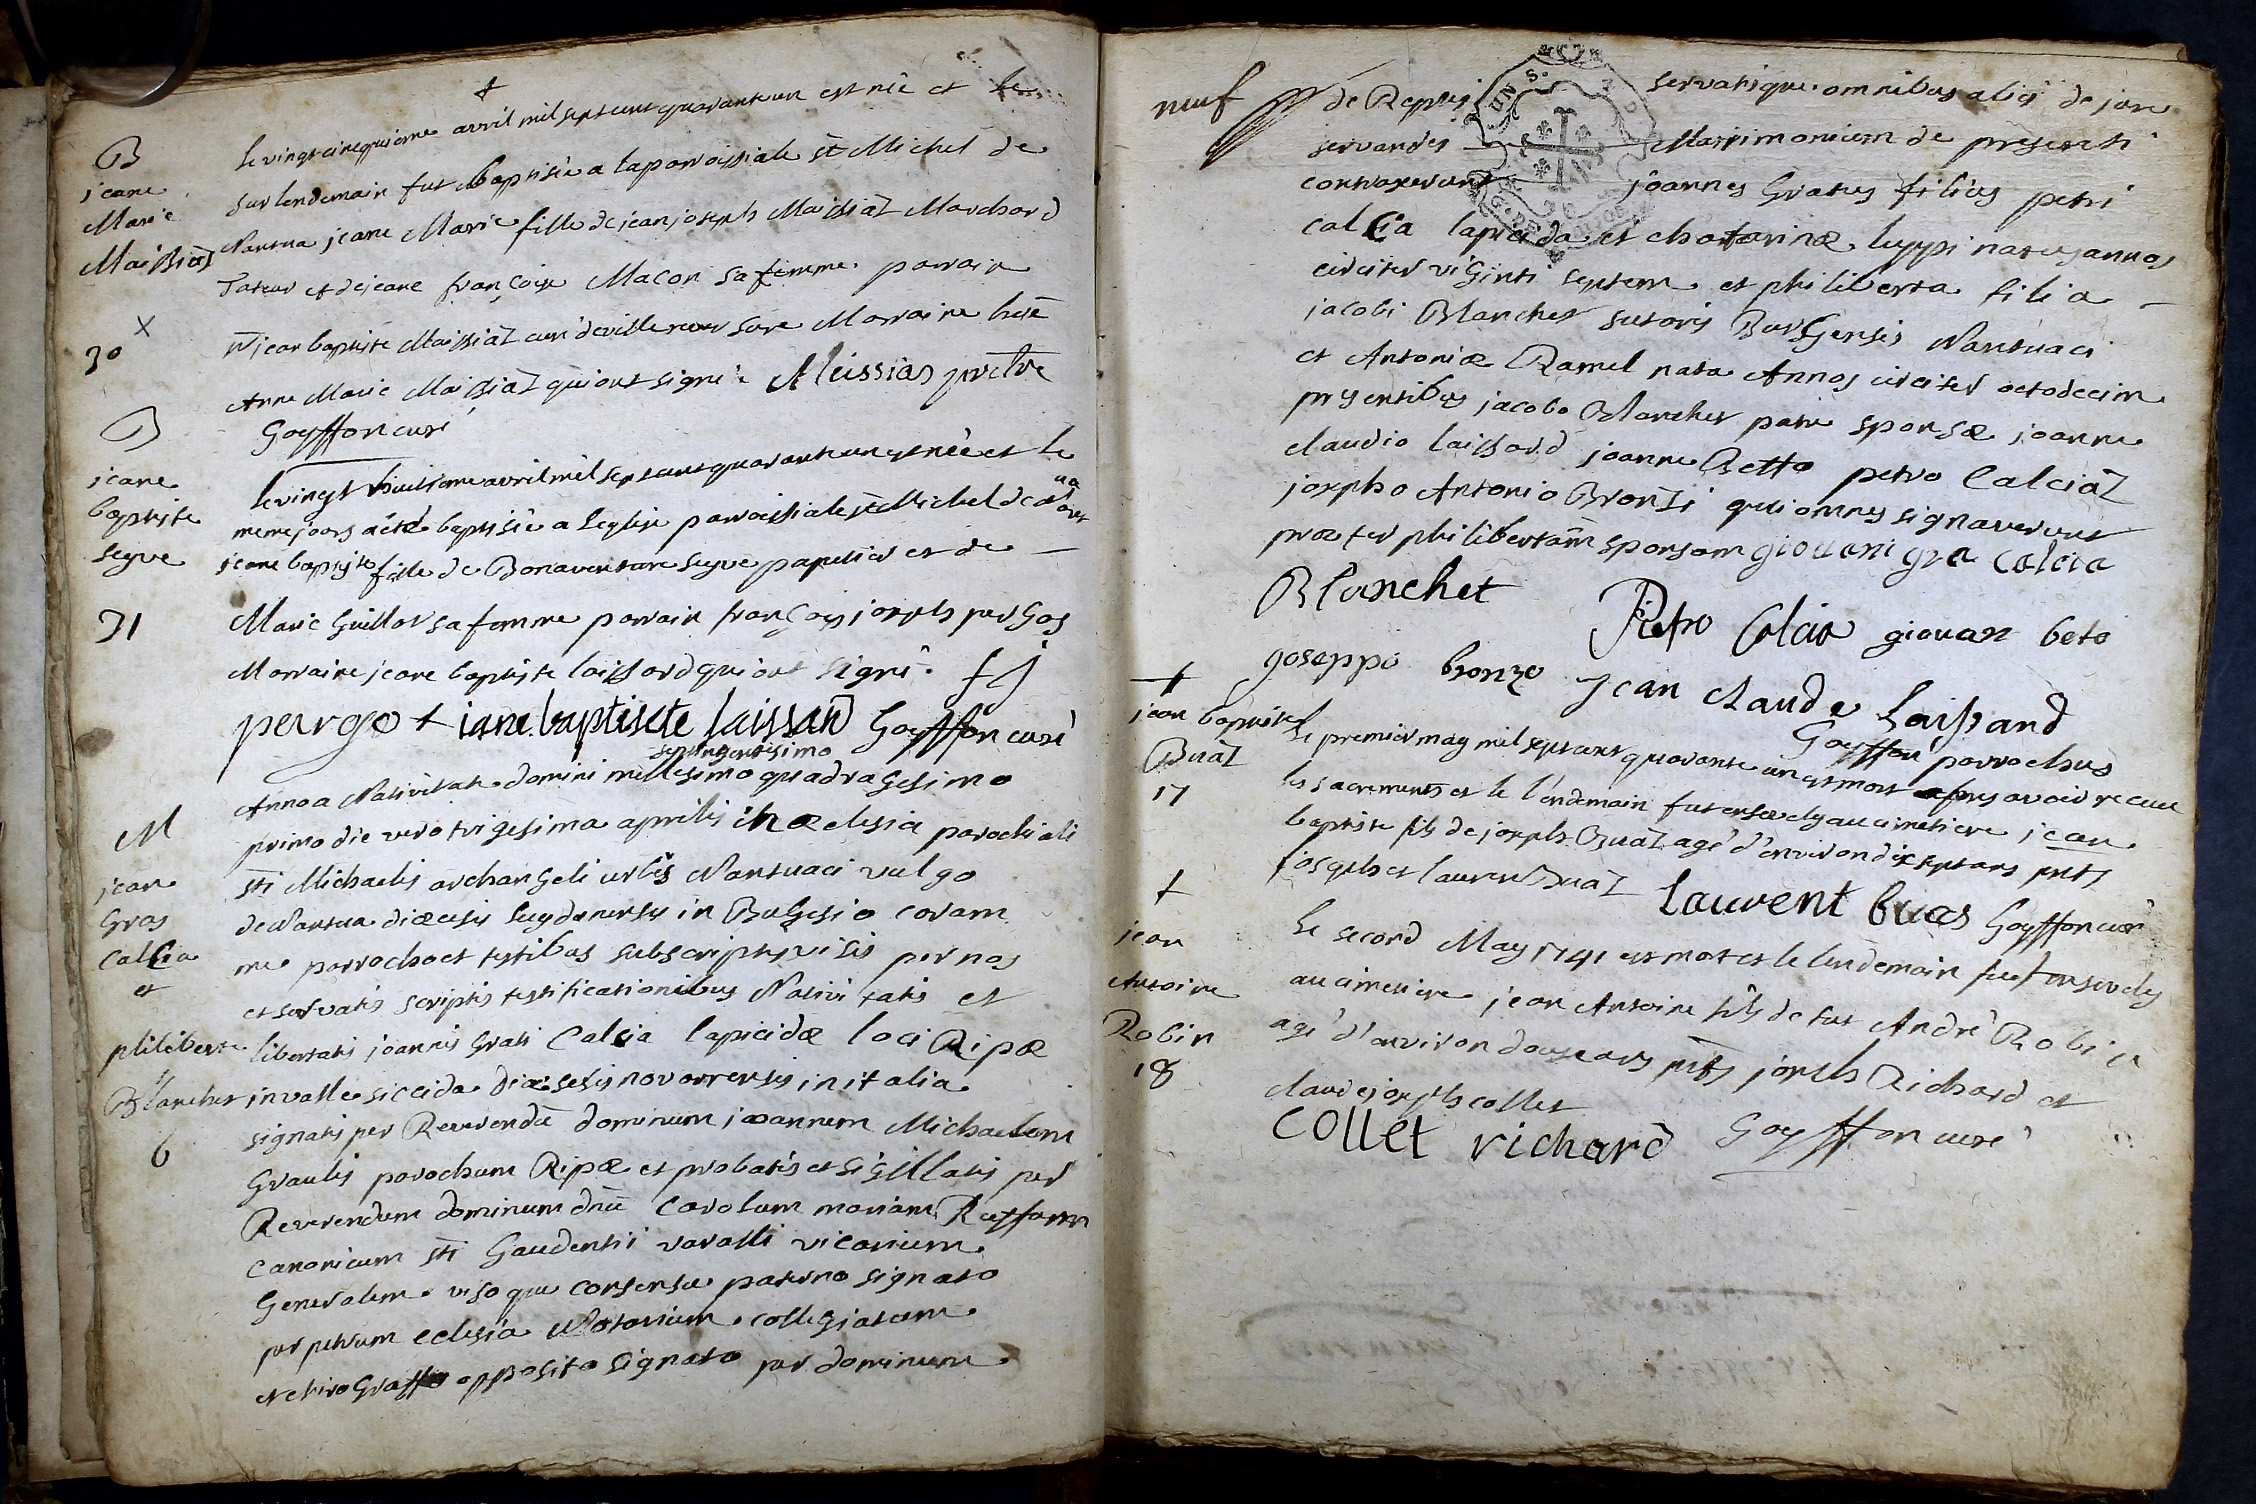 B
jeane
Marie
Maissiaz
30
le vingtcinquieme avril mil sept cent quarante un est née et le
surlendemain fut baptisée a la paroissiale st Michel de
Nantua jeane Marie fille de jean joseph Maissiaz Marchand
Taneur et de jeane françoise Macon sa femme parrain
jean baptiste Maissiaz curé de villeneuve Marraine
Anne Marie Maissiaz qui ont signé Meissias prêtre
Goyffon curé
B
jeane
baptiste
seyve
31
le vingt huitieme avril mil sept cent quarante un est née et le
meme jour a été baptisée a leglise paroissiale st Michel de
jeane baptiste fille de Bonaventure seyve papetier et de
Marie Guillot sa femme parrain françois joseph pergos
Marraine jeane baptiste laissard qui ont signé. f j
pergo + iane baptiscte laissard Goyffon curé
septingentesimo
Anno a Nativitate domini millesimo quadragesimo
M
jean
Gras
Calcia
et
philiberte
Blanchet
6
primo die vero trigesima aprilis in æclesia parochiali
sti Michaelis archangeli urbis Nantuaci vulgo
de Nantua diœcesis lugdunensis in Bugesio coram
me parrocho et testibus subscriptis visis per nos
et servatis scriptis testificationibus Nativitatis et
libertatis joannis Grati Calcia lapicidæ loci Ripæ
in valle siccida diœcesis novarrensis in italia
signatis per Reverendum dominum joannem Michaelem
Graulis parochum Ripæ et probatis et sigillatis per
Reverendum dominum dnū Carolum mariam
canonicum sti Gaudentii varalli vicarium
Generalem visoque consensu paterno signato
per petrum eclesia Notarium collegiatum
et chirograffo opposito signato per dominum
neuf
de Reptis servatisque omnibus aliis de jure
servandis Matrimonium de presenti
contraxerunt joannes Gratus filius petri
calcia lapicida et chatarinæ luppi natus annos
circiter viginti septem et philiberta filia
jacobi Blanchet sutoris Burgensis Nantuaci
et Antoniæ Ramel nata Annos circiter octodecim
presentibus jacobo Blanchet patre sponsæ joanne
claudio laissard joanne Betto petro Calciaz
josepho Antonio Bronzi qui omnes signaverunt
præter philibertam sponsam giouani gra calcia
Blanchet Pietro Colcia giouan beto
goseppo bronzo Jean Claude Laissard
Goyffon parrochus
+
jean baptiste
Buaz
17
le premier may mil sept cent quarante un est mort apres avoir receu
les sacrements et le l'endemain fut ensevely au cimetiere jean
baptiste fils de joseph Buaz agé d'environ dix sept ans pnts
joseph et laurent Buaz Laurent buas Goyffon curé
+
jean
Antoine
Robin
18
le second May 1741 est mort et le lendemain fut ensevely
au cimetiere jean Antoine fils de fut André Robin
agé d'environ douze ans pnts joseph Richard et
claude joseph collet
Collet richard Goyffon curé